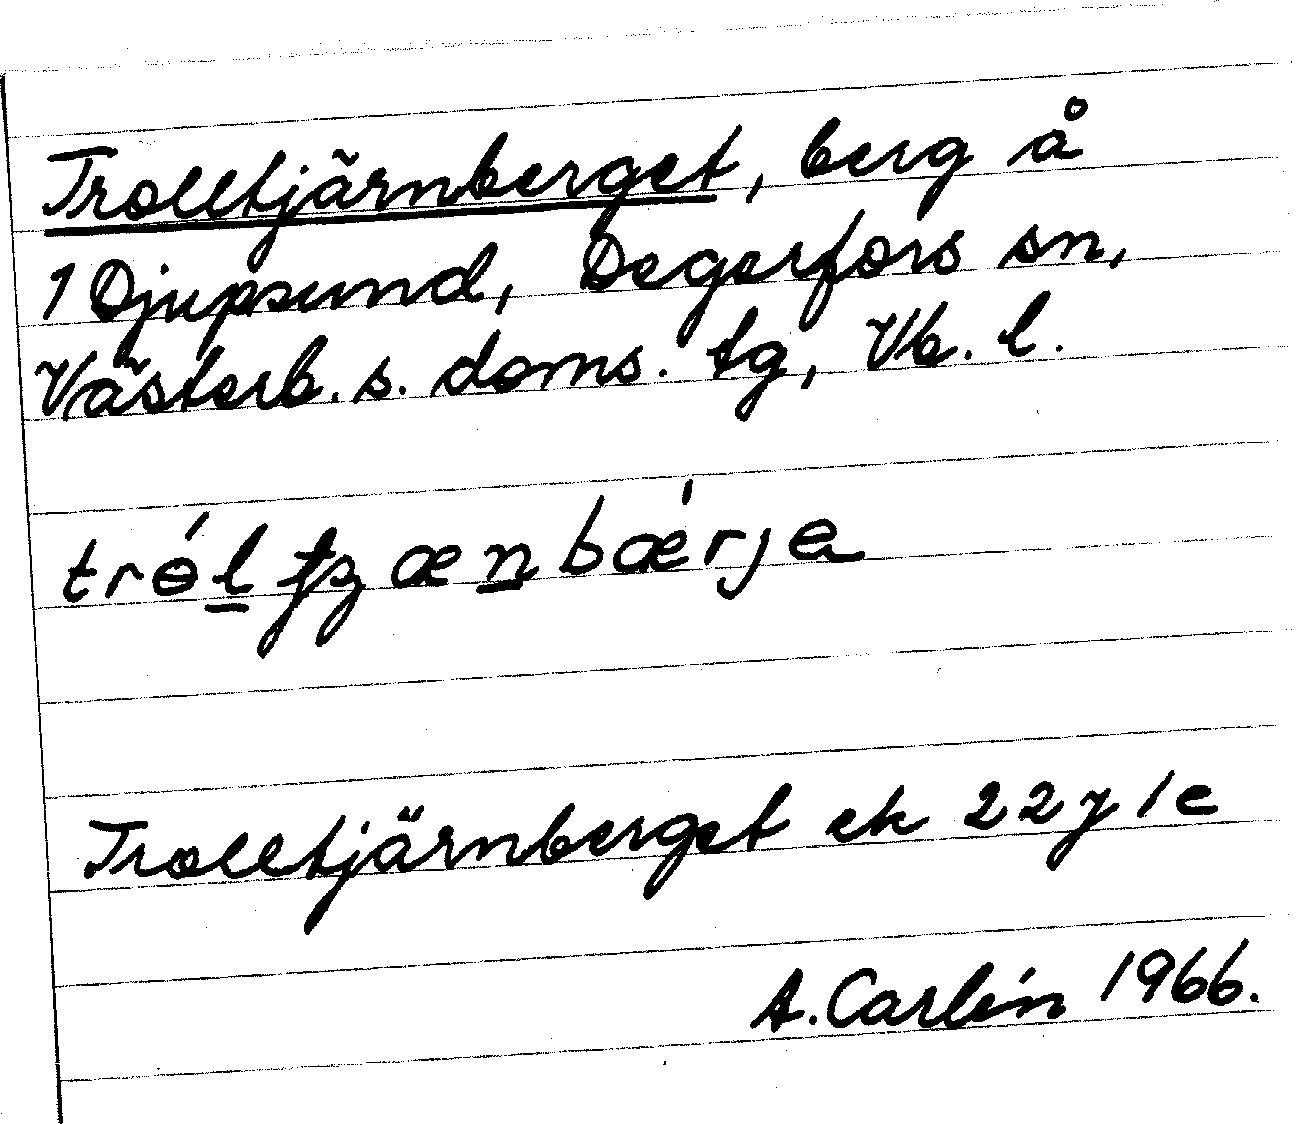 Trolltjärnberget, berg å
1 Djupsund, Degerfors sn,
Västerb. s. doms. tg, Vb. l.
trólt̠ʒæn̠bǽrjɐ
Trolltjärnberget ek 22 y 1 e
A. Carlén 1966.